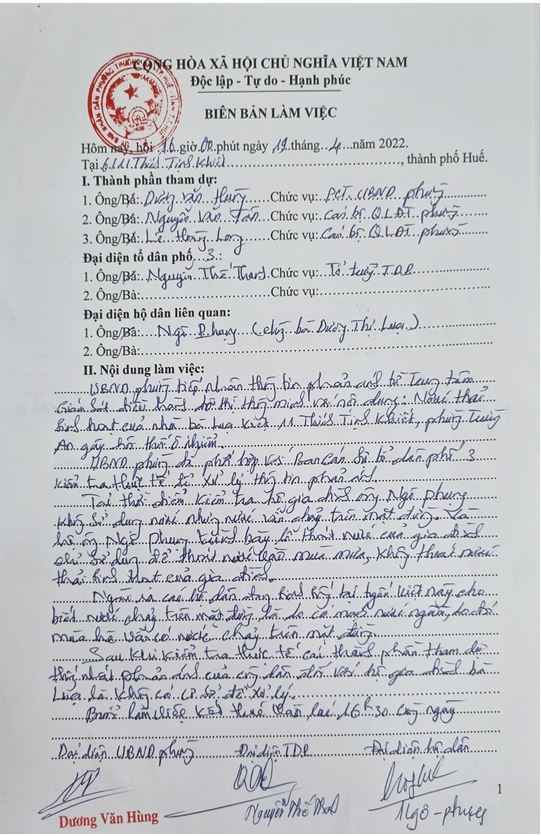 CỘNG HÒA XÃ HỘI CHỦ NGHĨA VIỆT NAM
Độc lập - Tự do - Hạnh phúc
BIÊN BẢN LÀM VIỆC
Hôm nay, hồi 16 giờ 00 phút ngày 19 tháng 4 năm 2022.
Tại 6/11 Thích Tịnh Khiết, thành phố Huế.
I. Thành phần tham dự:
1. Ông/Bà: Dương Văn Hùng Chức vụ: PCT. UBND phường
2. Ông/Bà: Nguyễn Văn Chức vụ: Cán bộ QLĐT phường
3. Ông/Bà: Lê Hoàng Long Chức vụ: Cán bộ QLĐT phường
Đại diện tổ dân phố 3:
1. Ông/Bà: Nguyễn Thế Chức vụ: Tổ trưởng TDP
2. Ông/Bà: Chức vụ:
Đại diện hộ dân liên quan:
1. Ông/Bà: Ngô Phụng (chồng bà Dương Thị Lụa)
2. Ông/Bà:
II. Nội dung làm việc:
UBND phường tiếp nhận thông tin phản ánh từ Trung tâm
Giám sát điều hành đô thị thông minh với nội dung: Nước thải
sinh hoạt của nhà bà Lụa kiệt 11 Thích Tịnh Khiết, phường Trường
An gây hôi thối ô nhiễm.
UBND phường đã phối hợp với Ban cán sự tổ dân phố 3
kiểm tra thực tế để xử lý thông tin phản ánh.
Tại thời điểm kiểm tra hộ gia đình ông Ngô Phụng
không sử dụng nước nhưng nước vẫn chảy trên mặt đường. Và
hộ ông Ngô Phụng trình bày lỗ thoát nước của gia đình
chỉ sử dụng để thoát nước vào mùa mưa, không thoát nước
thải sinh hoạt của gia đình.
Ngoài ra các hộ dân đang sinh sống tại tuyến kiệt này cho
biết nước chảy trên mặt đường là do có mạch nước ngầm, do đó
mùa hè vẫn có nước chảy trên mặt đường.
Sau khi kiểm tra thực tế các thành phần tham dự
thống nhất phản ánh của công dân đối với hộ gia đình bà
Lụa là không có cơ sở để xử lý.
Buổi làm việc kết thúc vào lúc 16h30 cùng ngày
Đại diện UBND phường Đại diện TDP Đại diện hộ dân
Dương Văn Hùng Nguyễn Thế Ngô Phụng
1